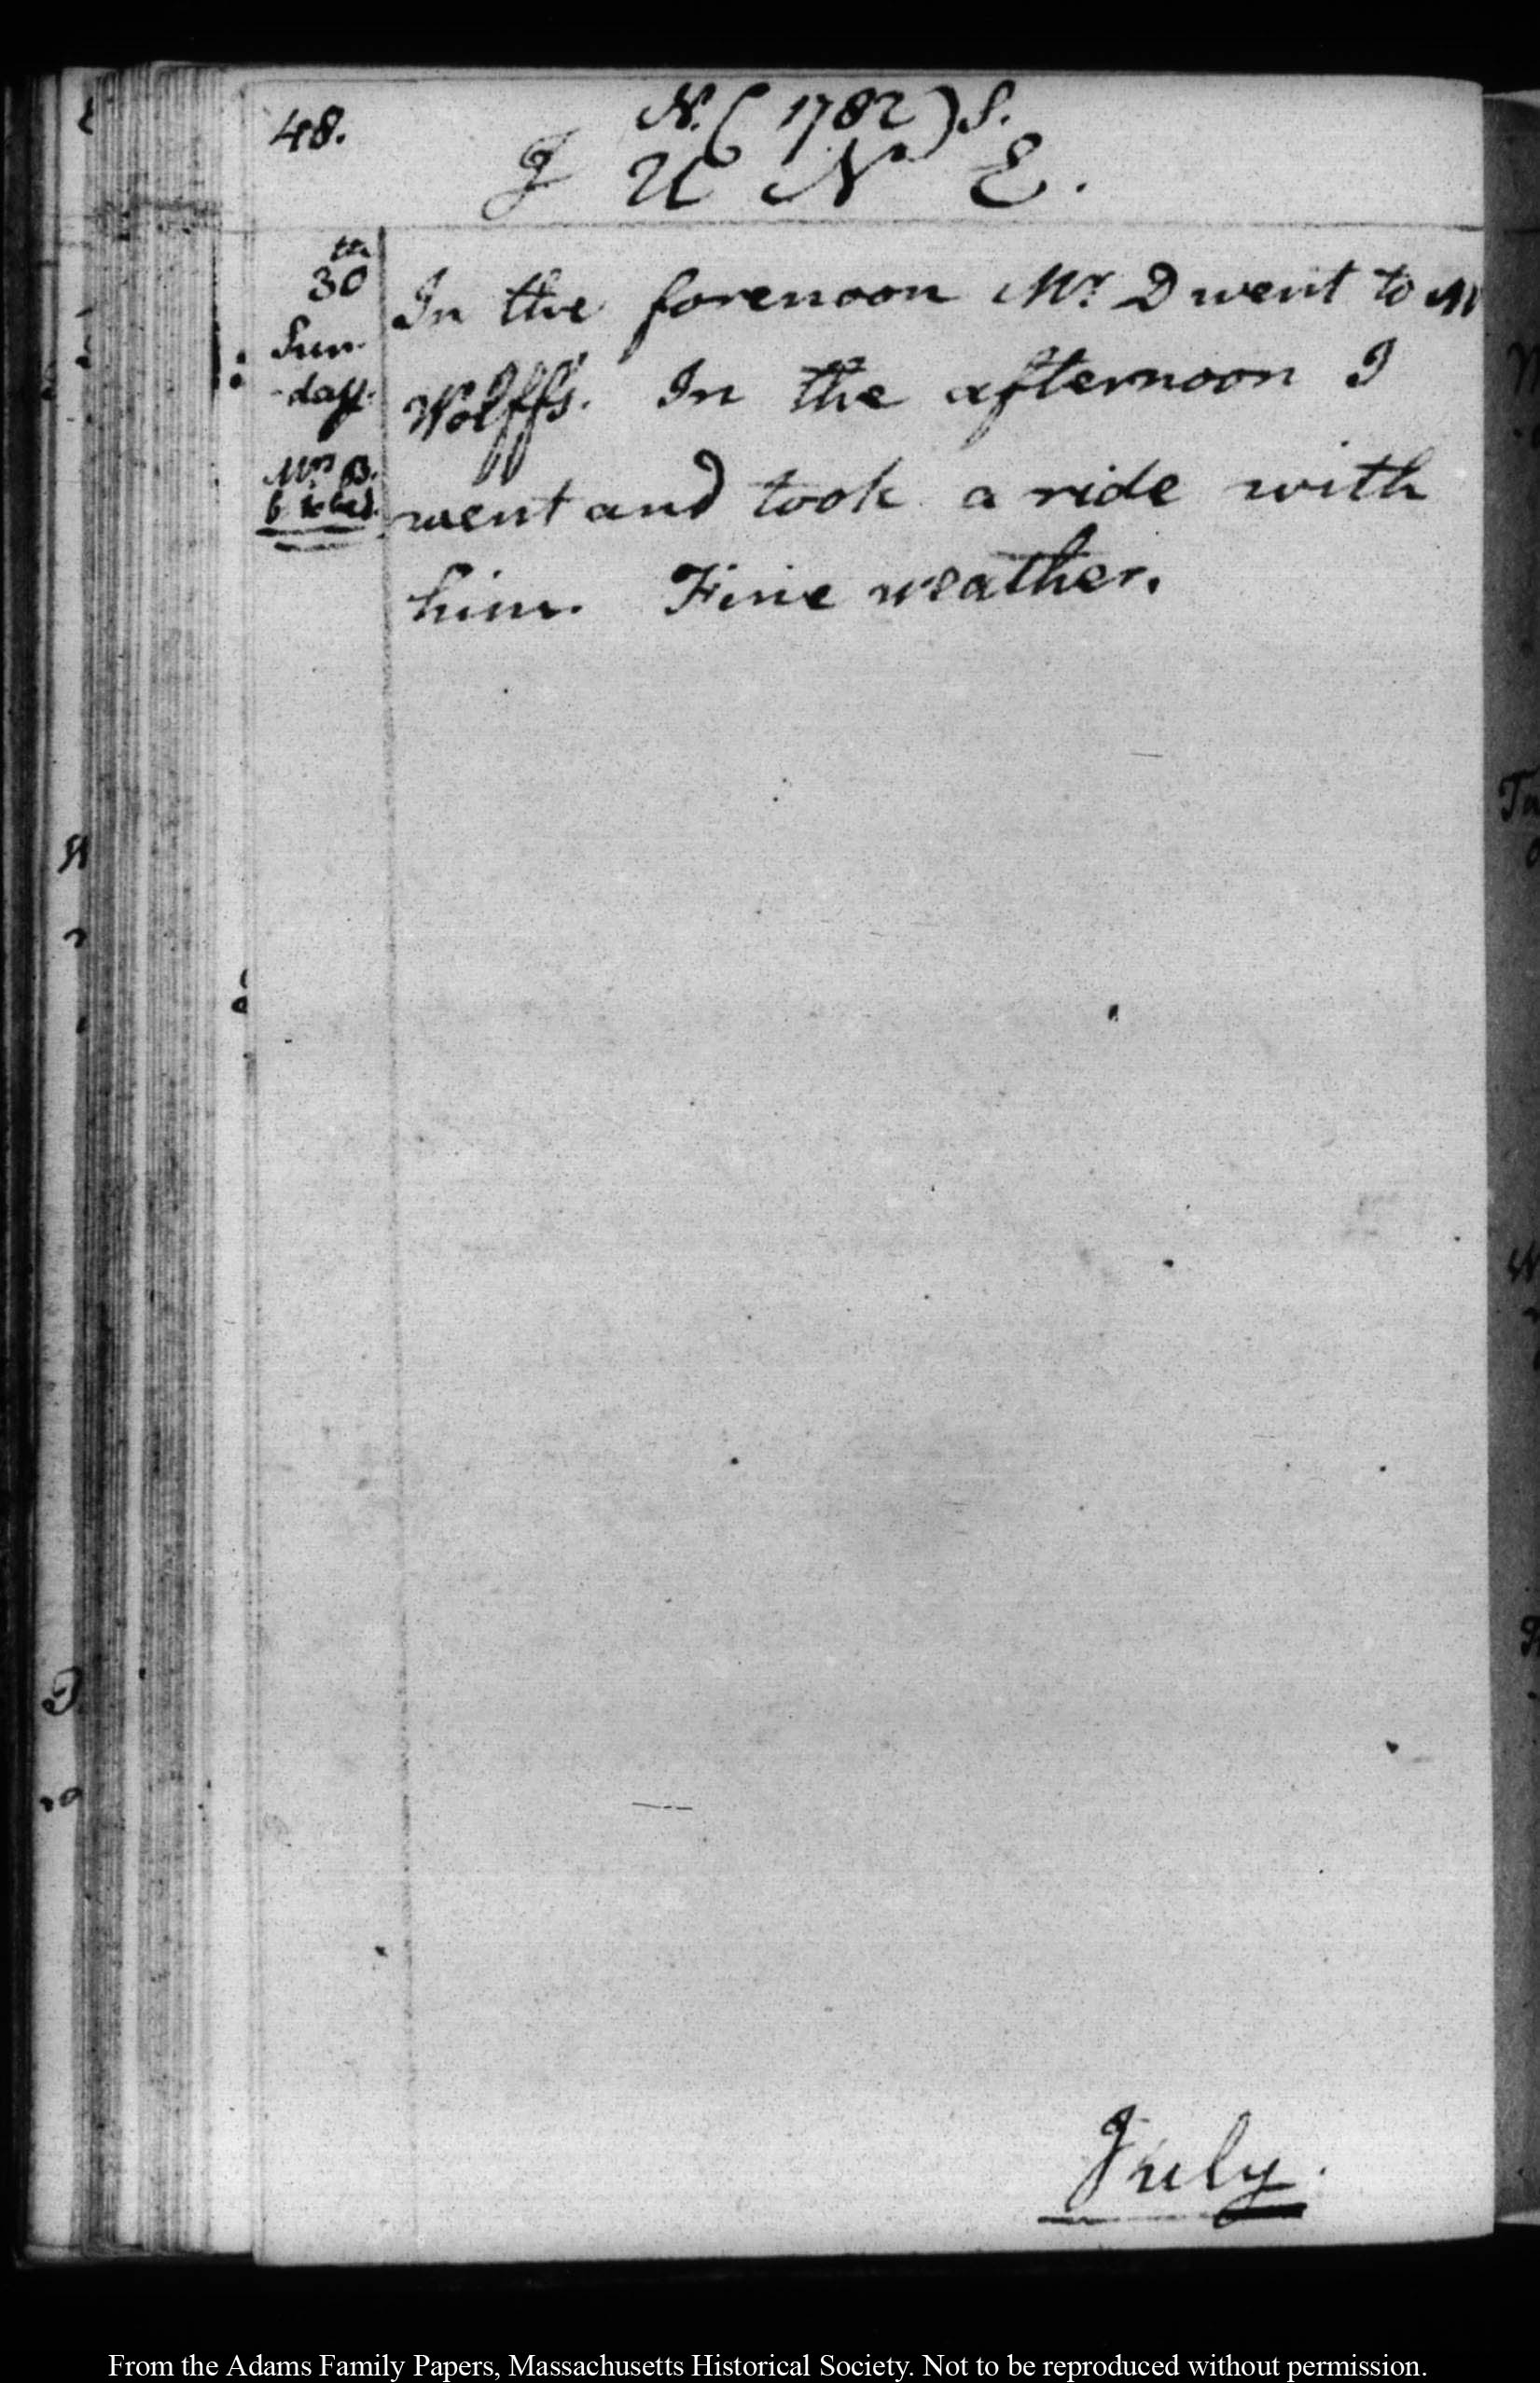 48.
N. (1782) S.
J U N E.
30th
Sun-
-day.
Mrs B.
In the forenoon Mr. D went to M
Wolff's. In the afternoon I
went and took a ride with
him. Fine weather.
July.
From the Adams Family Papers, Massachusetts Historical Society. Not to be reproduced without permission.